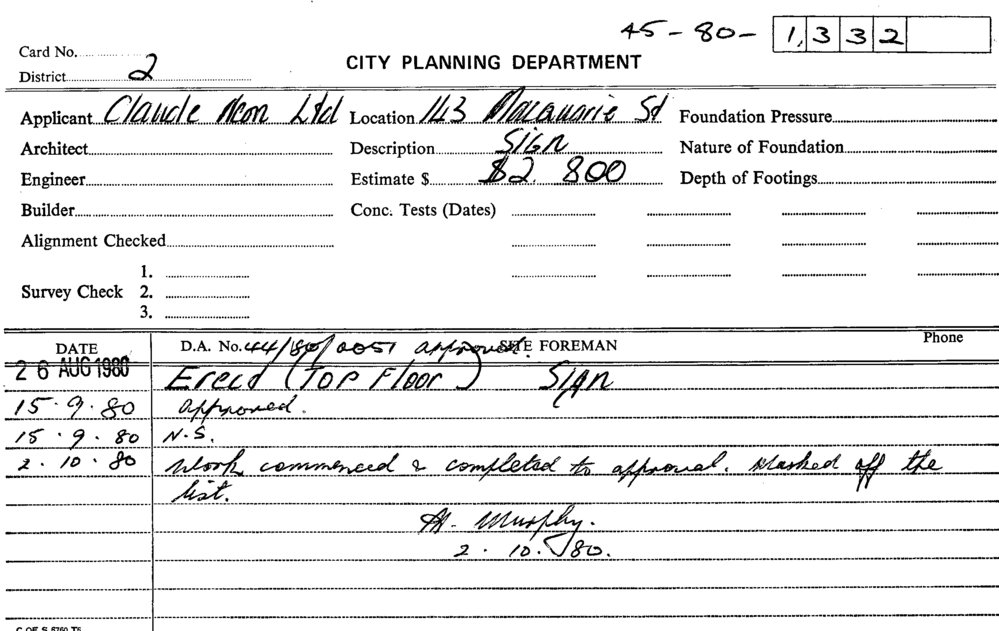 45-80- 1,332
Card No.
District 2
CITY PLANNING DEPARTMENT
Applicant Claude Neon Ltd Location 143 Macquarie St Foundation Pressure
Architect Description Sign Nature of Foundation
Engineer Estimate $ $2 800 Depth of Footings
Builder Conc. Tests (Dates)
Alignment Checked
1.
Survey Check 2.
3.
DATE D.A. No. 44/80/0051 approved. SITE FOREMAN Phone
26 AUG 1980 Erect (Top Floor) Sign
15.9.80 approved.
15.9.80 N.S.
2.10.80 Work commenced & completed to approval. Marked off the
list.
Murphy.
2.10.80.
C OF S 5760 T5